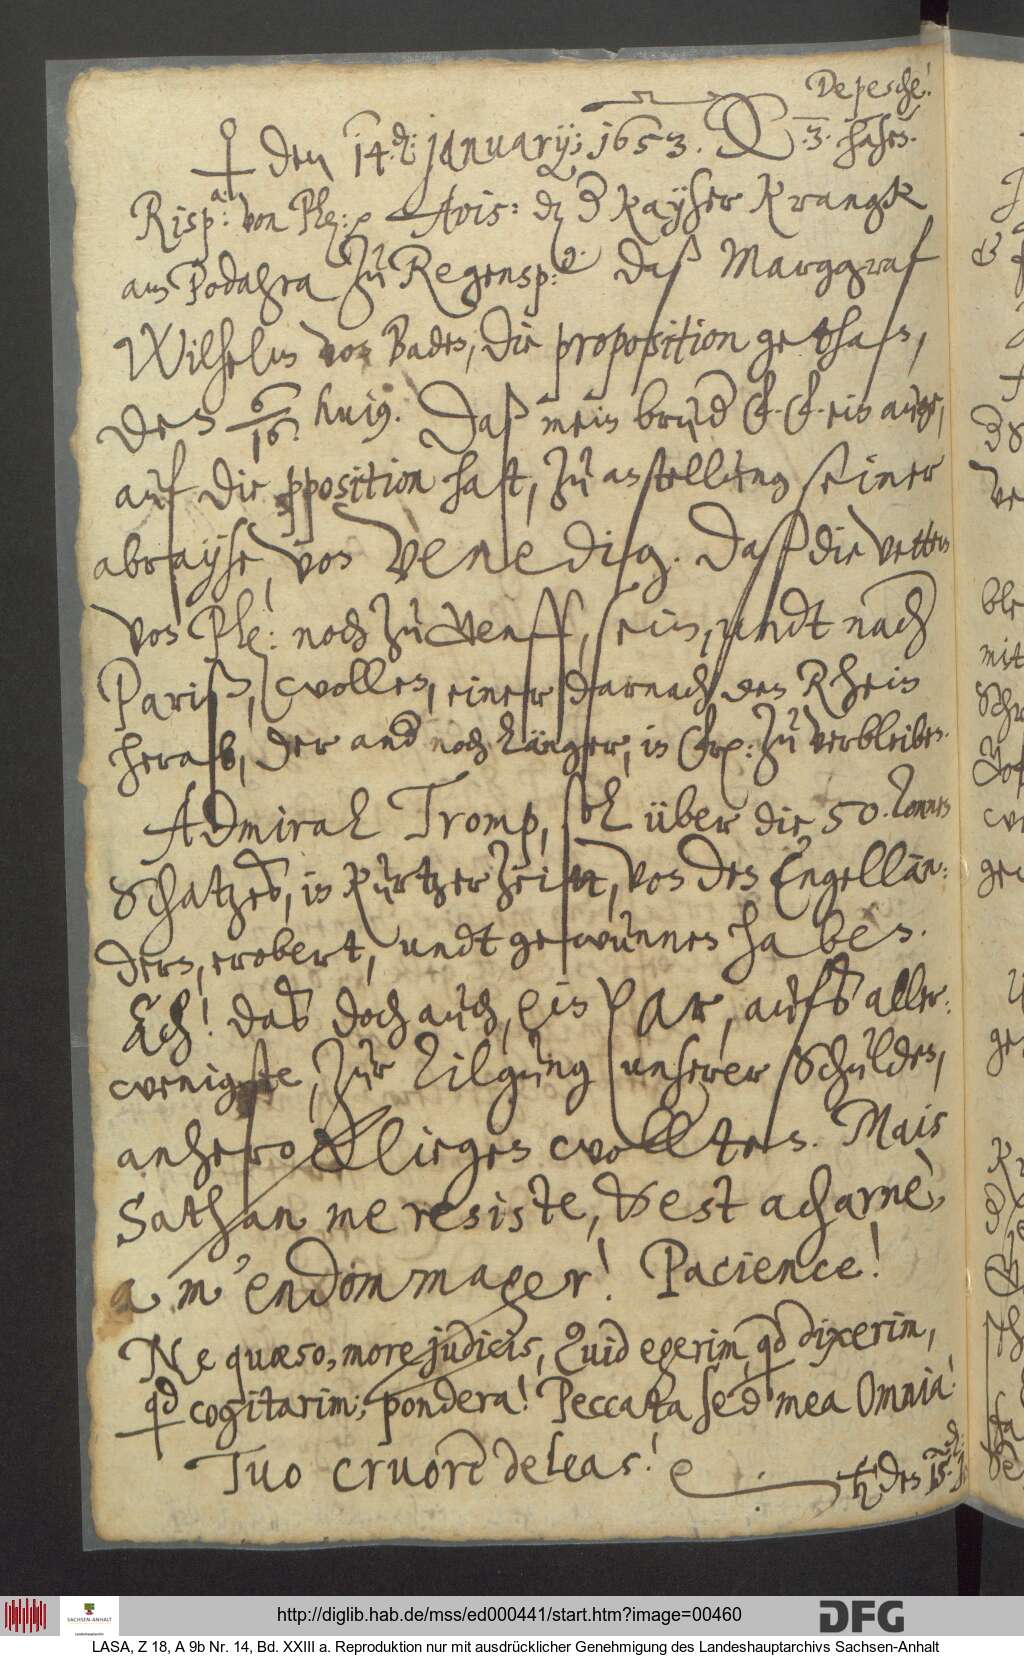 Depesche!
♀ den 14.d: January; 1653. .3. hasen.
Risp:a von Ple: Avis: dz d Kayser Kranck
am Podagra zu Regensp:g. Daß Marggraf
Wilhelm von Baden, die proposition gethan,
den 6/16. huius. Daß mein brud ein auge,
auf die pposition hatt, zu anstellung seiner
abrayse, von Venedig. Daß die vettern
von Ple: noch zu Genff, sein, undt nach
Pariß, wollen, einer darnach den Rhein
herab, der and noch länger, in zu verbleiben.
Admiral Tromp, sol über die 50. Tonnen
Schatzes, in kurtzer zeitt, von den Engellän:
dern, erobert, undt gewunnen haben.
Ach! das doch auch, ein par, aufs aller:
wenigste, zur tilgung unserer Schulden,
anhero fliegen wollten. Mais
Sathan me resiste, & est acharnè,
a m'endommager! Pacience!
Ne quæso, more judicis, Quid egerim, qd dixerim,
qd cogitarim; pondera! Peccata sed mea Omnia!
Tuo cruore deleas!
♄ den 15.d:
http://diglib.hab.de/mss/ed000441/start.htm?image=00460
SACHSEN-ANHALT
Landeshauptarchiv
DFG
LASA, Z 18, A 9b Nr. 14, Bd. XXIII a. Reproduktion nur mit ausdrücklicher Genehmigung des Landeshauptarchivs Sachsen-Anhalt